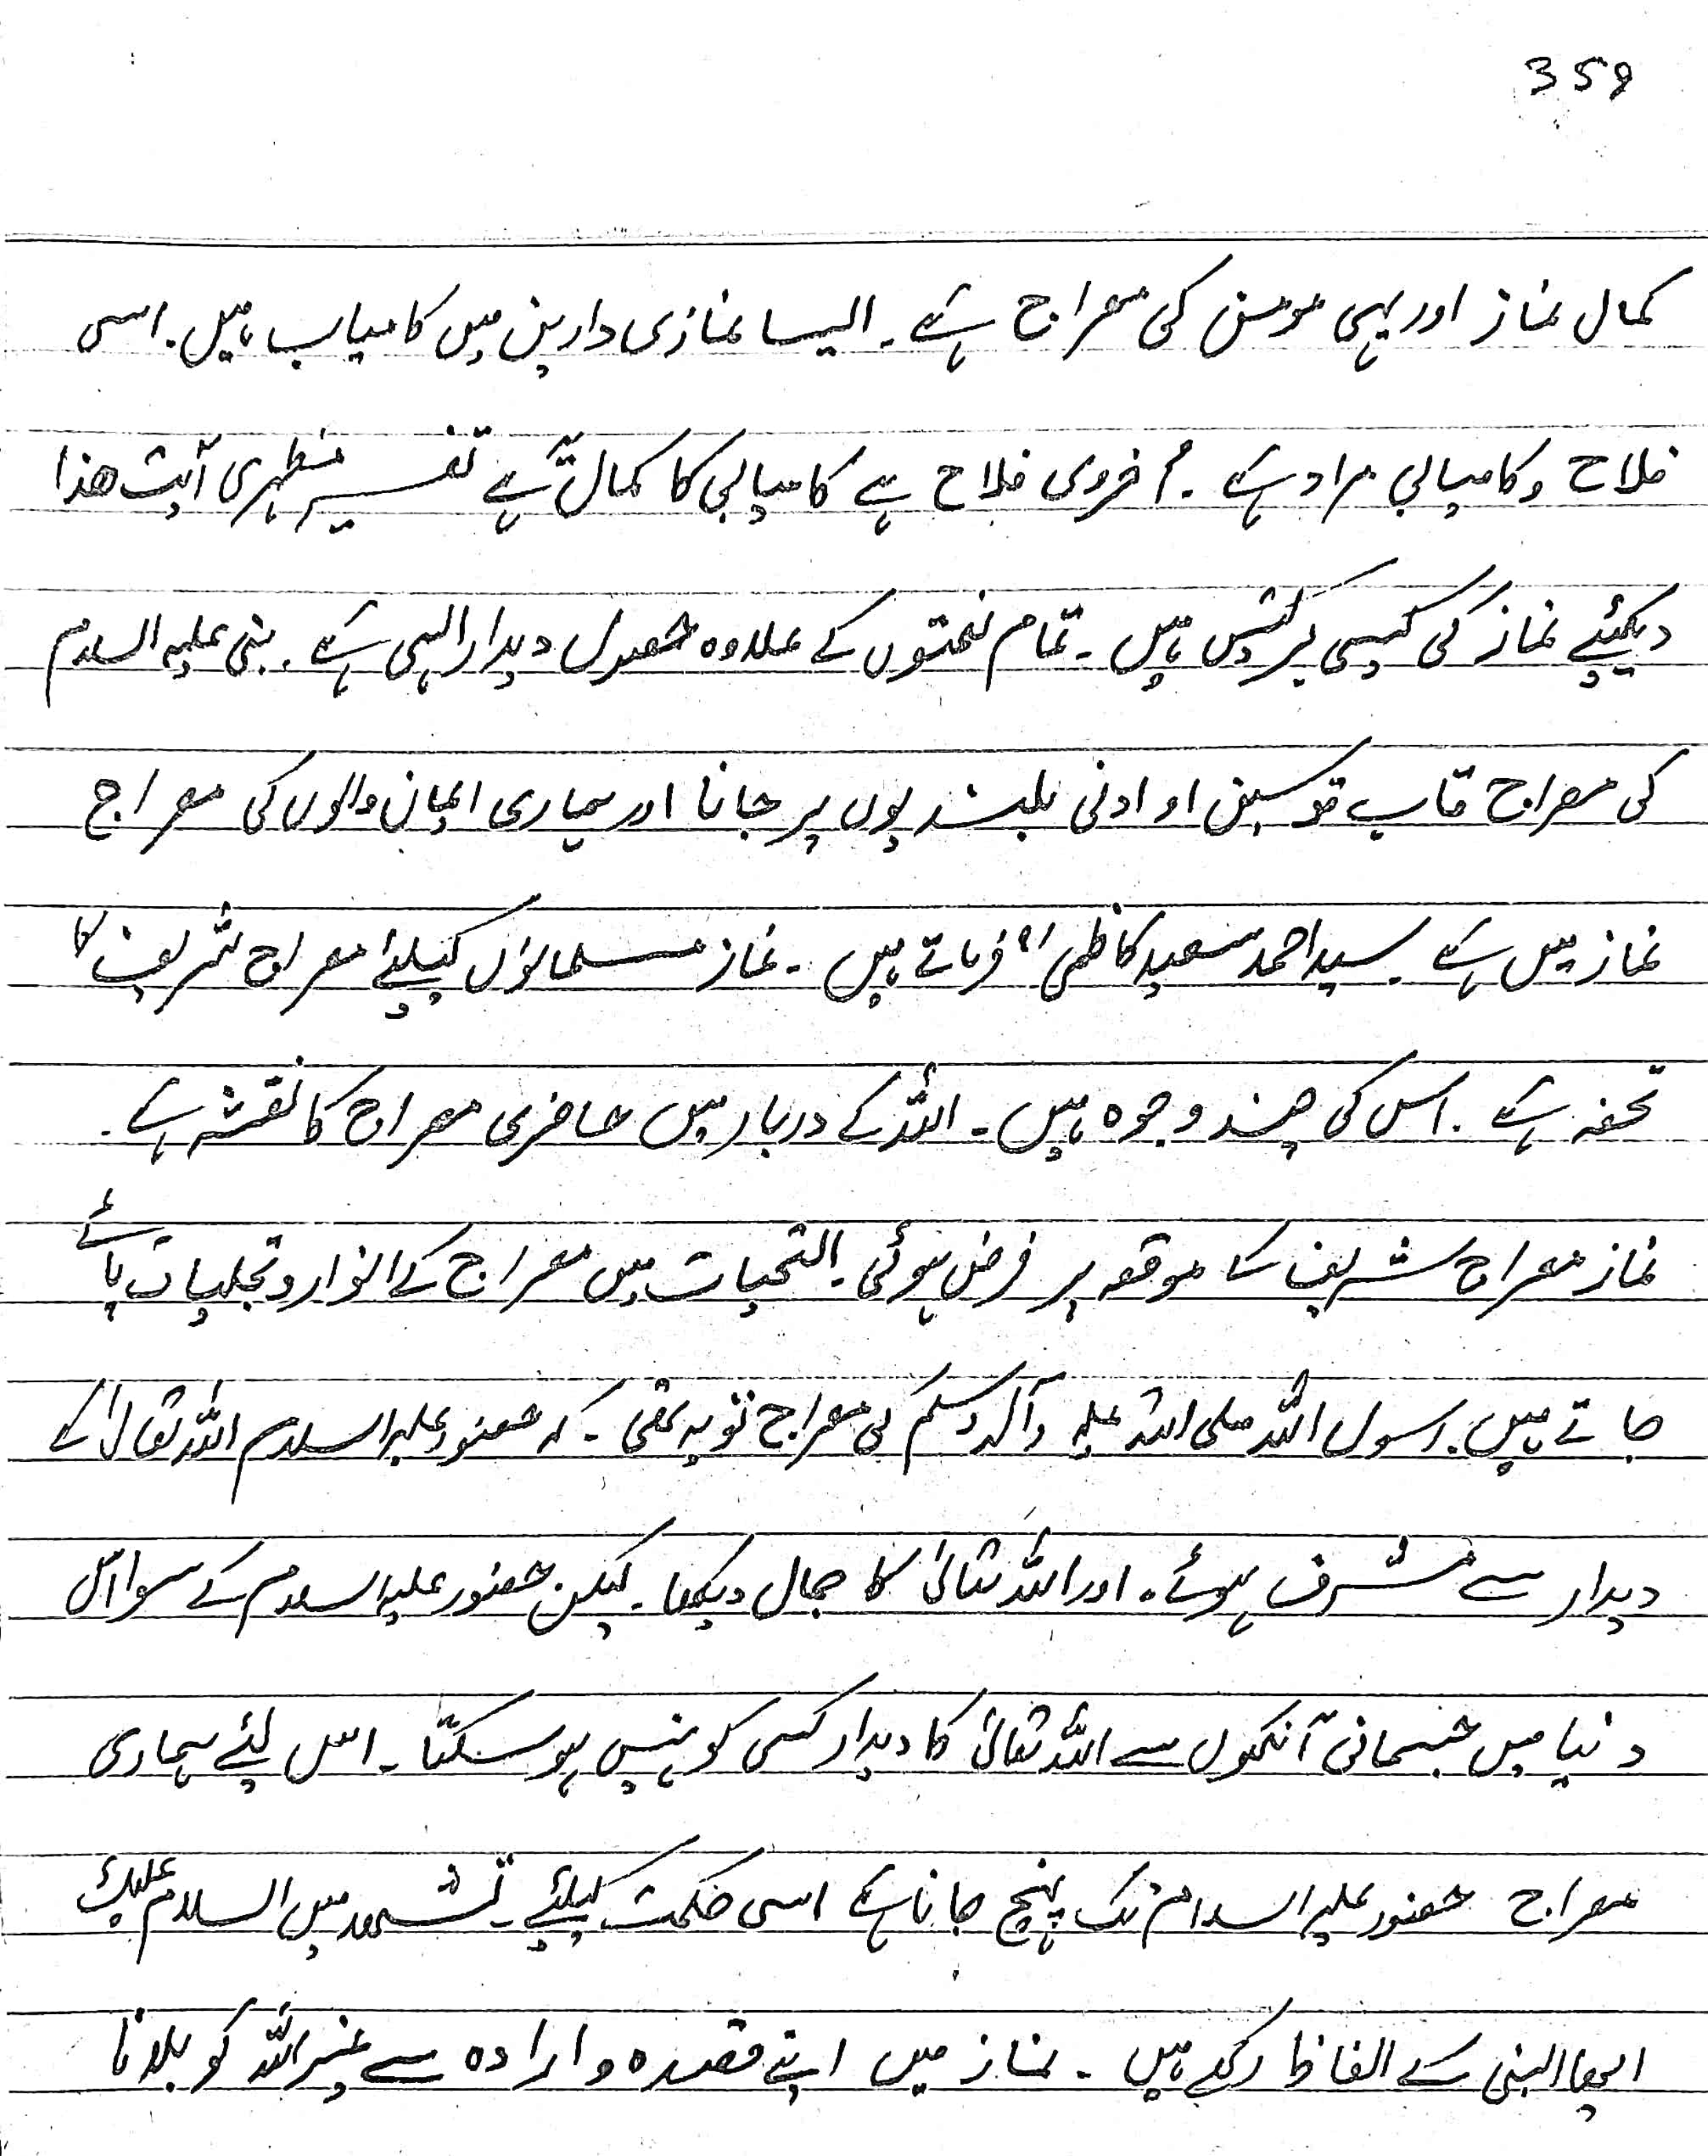 359
کمال نماز اور یہی مومن کی معراج ہے۔ ایسا نمازی دارین میں کامیاب ہیں۔ اسی
فلاح و کامیابی مراد ہے۔ اخروی فلاح ہے کامیابی کا کمال ہے تفسیر مظہری آیت ھذا
دیکھئیے نماز کی کیسی برکتیں ہیں۔ تمام نعمتوں کے علاوہ حصول دیدار الہی ہے۔ نبی علیہ السلام
کی معراج قاب قوسین او ادنی بلندیوں پر جانا اور ہماری ایمان والوں کی معراج
نماز میں ہے۔ سید احمد سعید کاظمیؒ فرماتے ہیں۔ نماز مسلمانوں کیلئے معراج شریف کا
تحفہ ہے۔ اس کی چند وجوہ ہیں۔ اللہ کے دربار میں حاضری معراج کا نقشہ ہے۔
نماز معراج شریف کا موقعہ پر فرض ہوئی۔ التحیات میں معراج کے انوار و تجلیات پائے
جاتے ہیں۔ رسول اللہ صلی اللہ علیہ وآلہ وسلم کی معراج تو یہ تھی۔ کہ حضور علیہ السلام اللہ تعالیٰ کے
دیدار سے مشرف ہوئے۔ اور اللہ تعالیٰ کا جمال دیکھا۔ لیکن حضور علیہ السلام کے سوا اس
دنیا میں جسمانی آنکھوں سے اللہ تعالیٰ کا دیدار کسی کو نہیں ہو سکتا۔ اس لئے ہماری
معراج حضور علیہ السلام تک پہنچ جانا ہے اسی حکمت کیلئے۔ تشہد میں السلام علیک
ایھا النبی کے الفاظ رکھے ہیں۔ نماز میں اپنے قصدہ و ارادہ سے غیر اللہ کو بلانا